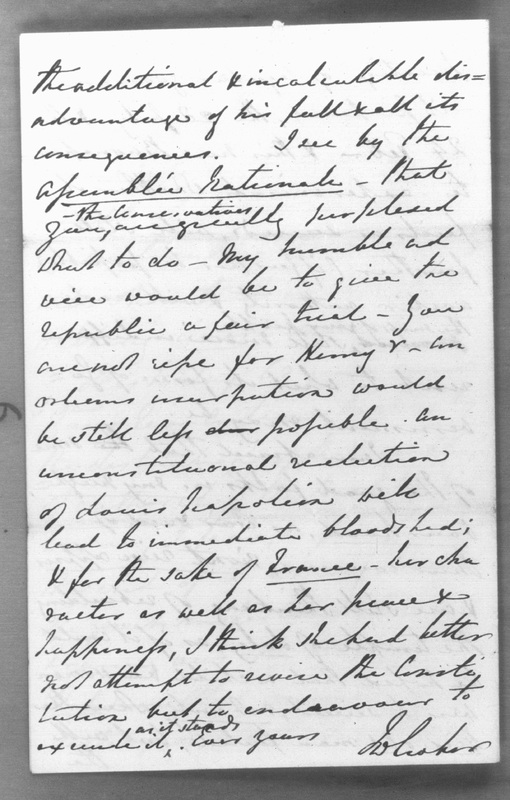 the additional & incalculable dis=
advantage of his fall & all its
consequences. I see by the
Assemblée Nationale - that
- the Conservatives
you, are greatly perplexed
what to do - My humble ad
vice would be to give the
republic a fair trial - You
are not ripe for Henry V - an
orleans usurpation would
be still less possible. an
unconstitutional reelection
of Louis Napoleon will
lead to immediate bloodshed;
& for the sake of France - her cha
racter as well as her peace &
happiness, I think she had better
not attempt to revise the Consti
tution but to endeavour to
as it stands
execute it, Ever yours
JWCroker